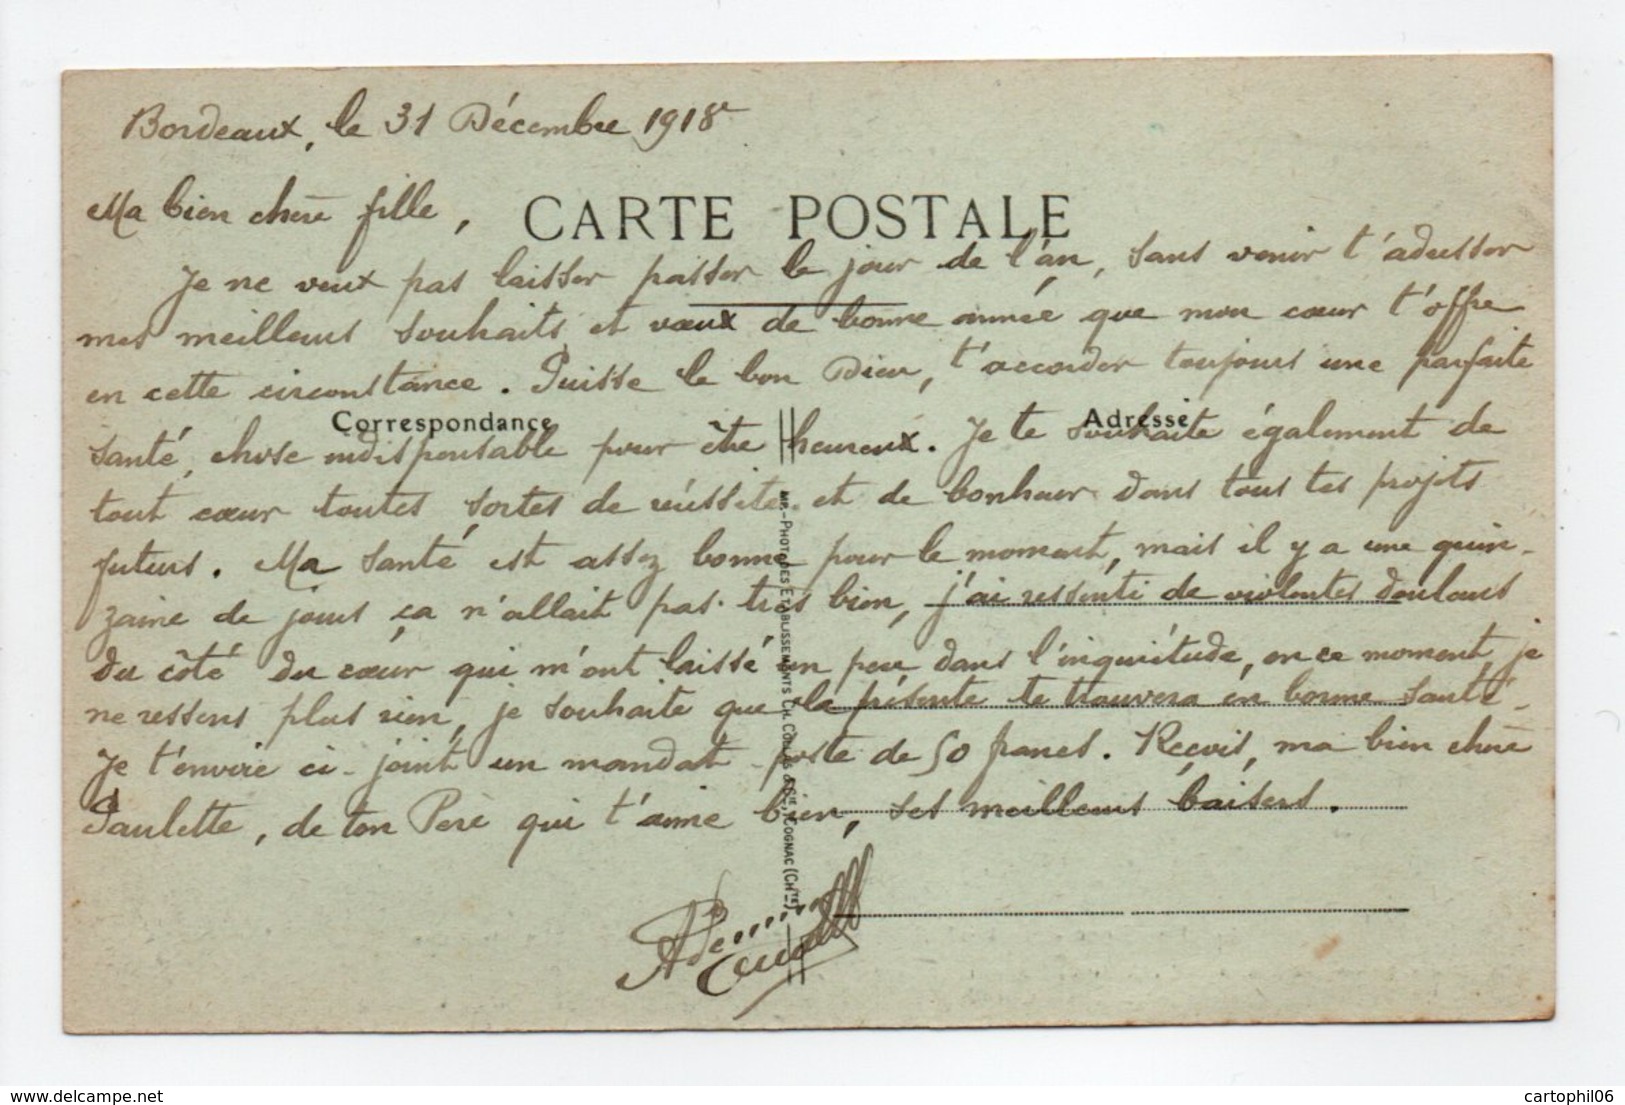 Bordeaux, le 31 Décembre 1918
Ma bien chère fille,
CARTE POSTALE
Je ne veux pas laisser passer le jour de l'an, sans venir t'adresser
mes meilleurs souhaits et vœux de bonne année que mon cœur t'offre
en cette circonstance. Puisse le bon Dieu, t'accorder toujours une parfaite
Correspondance
Adresse
santé, chose indispensable pour être heureux. Je te souhaite également de
tout cœur toutes sortes de réussites et de bonheur dans tous tes projets
futurs. Ma santé est assez bonne pour le moment, mais il y a une quin-
zaine de jours ça n'allait pas très bien, j'ai ressenti de violentes douleurs
du côté du cœur qui m'ont laissé un peu dans l'inquiétude, en ce moment je
ne ressens plus rien, je souhaite que la présente te trouvera en bonne santé-
Je t'envoie ci-joint un mandat-poste de 50 francs. Reçois, ma bien chère
Paulette, de ton Père qui t'aime bien, ses meilleurs baisers.
IMP.-PHOTO DES ETABLISSEMENTS CH. COLLAS & Cie, COGNAC (Chte)
delcampe.net
cartophil06